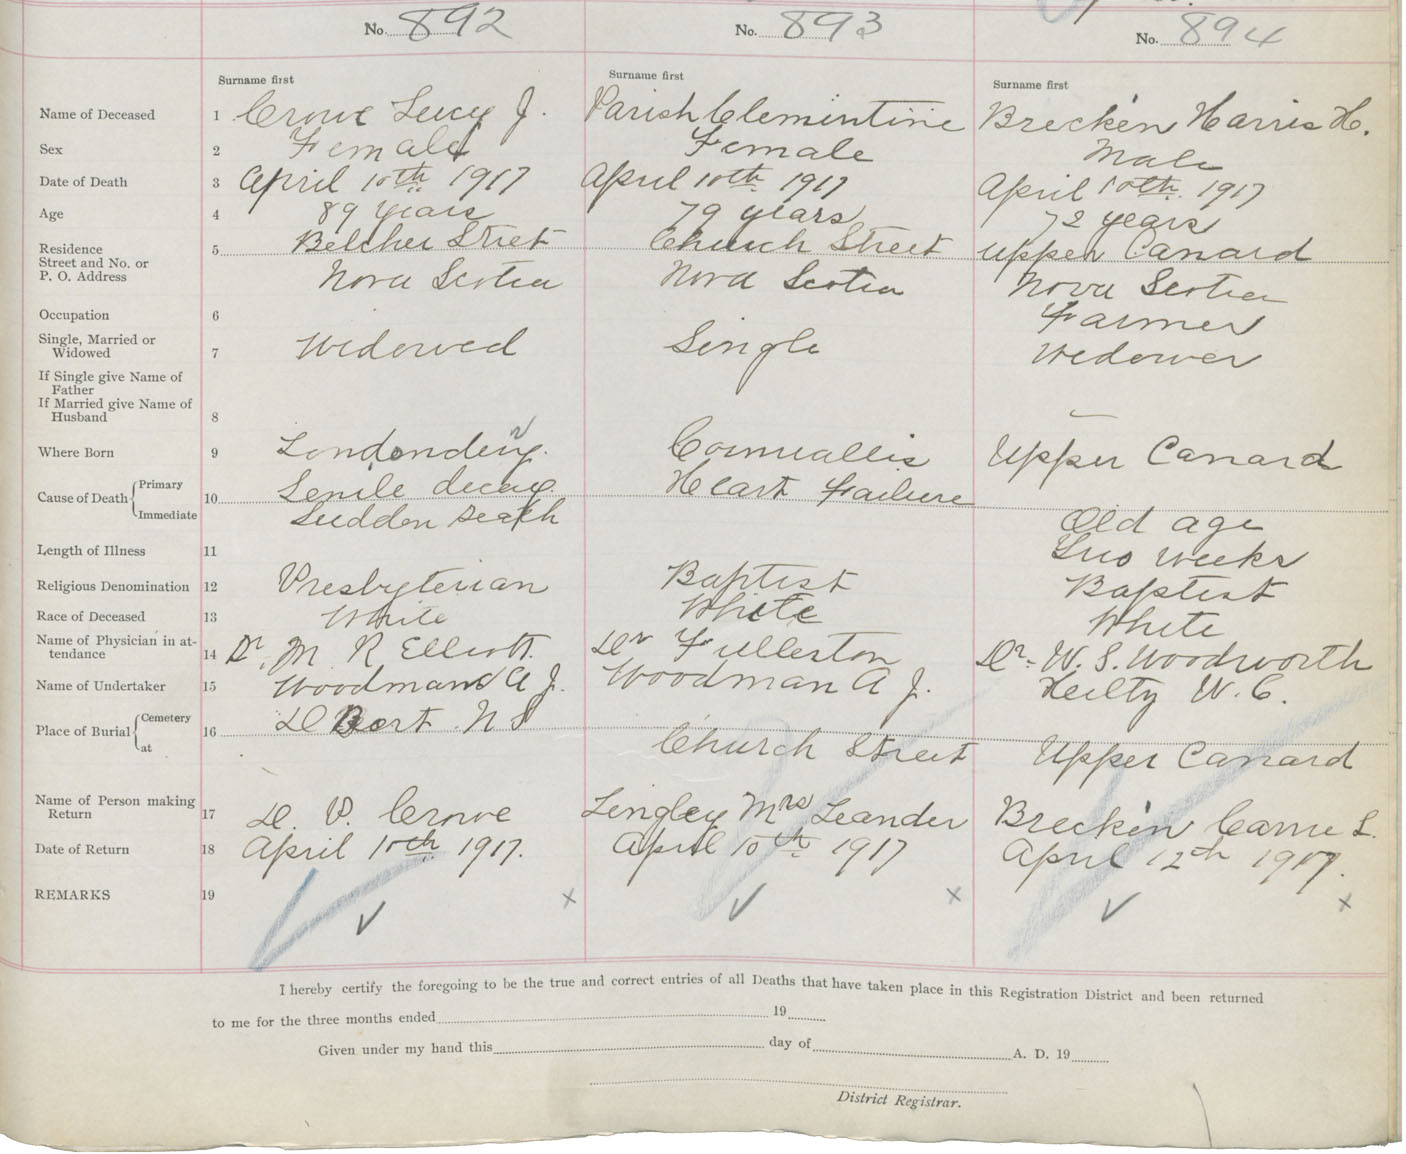 No. 892 No. 893 No. 894
Surname first Surname first Surname first
Name of Deceased 1 Crowe Lucy J. Parish Clementine Brecken Harris H.
Sex 2 Female Female Male
Date of Death 3 April 10th 1917 April 10th 1917 April 10th 1917
Age 4 89 years 79 years 72 years
Residence
Street and No. or 5 Belcher Street Church Street Upper Canard
P. O. Address Nova Scotia Nova Scotia Nova Scotia
Occupation 6 Farmer
Single, Married or
Widowed 7 Widowed Single Widower
If Single give Name of
Father
If Married give Name of
Husband 8
Where Born 9 Londonderry Cornwallis Upper Canard
Cause of Death { Primary 10 Senile decay Heart Failure
Immediate Sudden Death Old age
Length of Illness 11 Two weeks
Religious Denomination 12 Presbyterian Baptist Baptist
Race of Deceased 13 White White White
Name of Physician in at-
tendance 14 Dr. M R Elliott Dr Fullerton Dr. W. S. Woodworth
Name of Undertaker 15 Woodman A J. Woodman A J. Hilty W. C.
Place of Burial { Cemetery 16 DeBert N S
at Church Street Upper Canard
Name of Person making
Return 17 D. P. Crowe Lingley Mrs Leander Brecken Carrie L.
Date of Return 18 April 10th 1917. April 10th 1917 April 12th 1917.
REMARKS 19
I hereby certify the foregoing to be the true and correct entries of all Deaths that have taken place in this Registration District and been returned
to me for the three months ended 19
Given under my hand this day of A. D. 19
District Registrar.